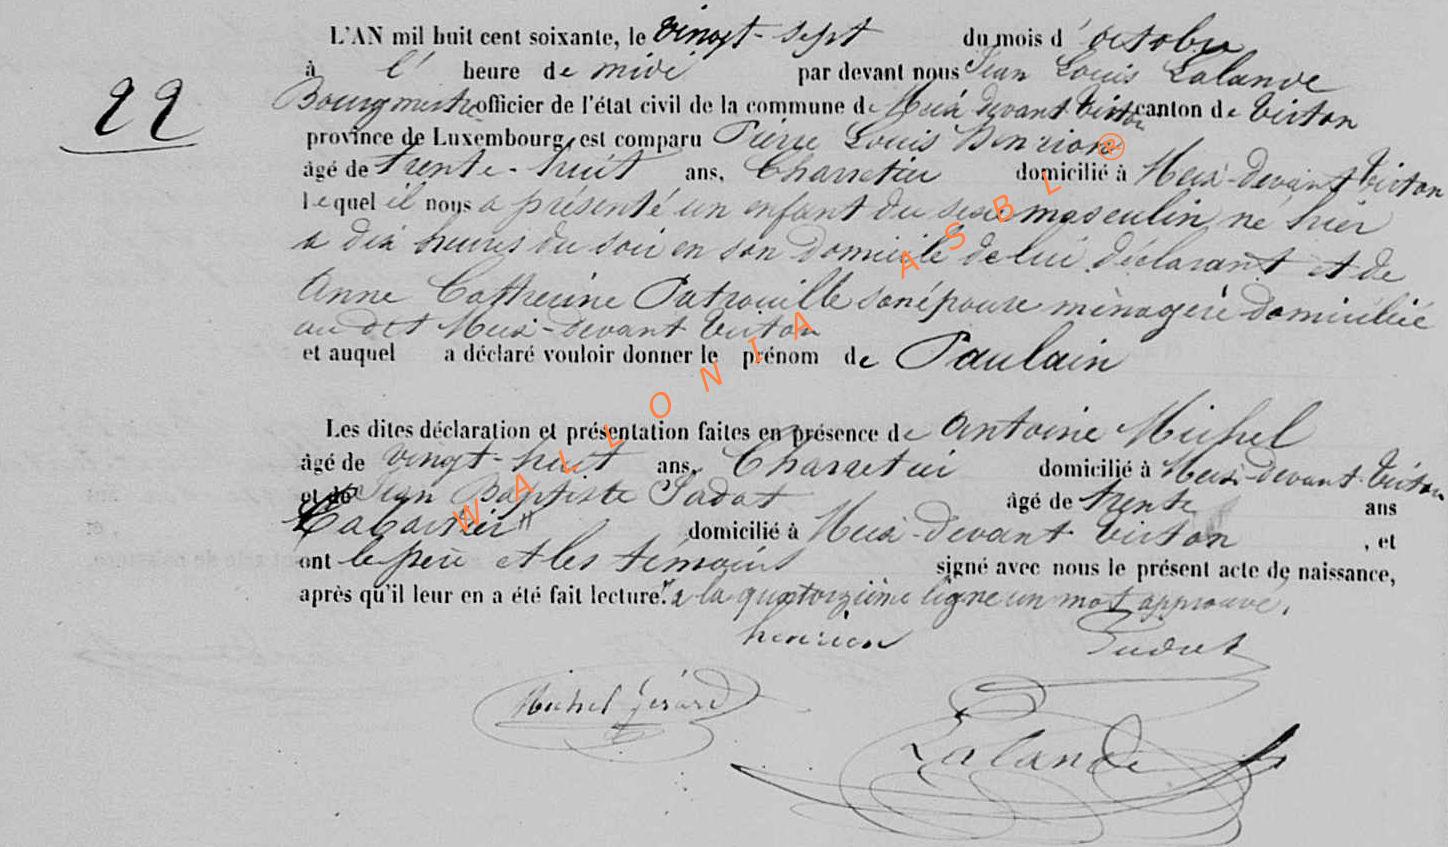 L'AN mil huit cent soixante, le vingt-sept du mois d'octobre
22
à l' heure de midi par devant nous Jean Louis Lalande
Bourgmestre officier de l'état civil de la commune de Meix devant Virton canton de Virton
province de Luxembourg, est comparu Pierre Louis Henrion
âgé de trente-huit ans, Charretier domicilié à Meix-devant Virton
lequel il nous a présenté un enfant du sexe masculin né hier
à dix heures du soir en son domicile de lui déclarant et de
Anne Catherine Patrouille son épouse ménagère domiciliée
au dit Meix-devant Virton
et auquel a déclaré vouloir donner le prénom de Paulain
Les dites déclaration et présentation faites en présence de Antoine Michel
âgé de vingt-huit ans, Charretier domicilié à Meix-devant-Virton
et de Jean Baptiste Jadot âgé de trente ans
Cabartier" domicilié à Meix-devant Virton , et
ont le père et les temoins signé avec nous le présent acte de naissance,
après qu'il leur en a été fait lecture." à la quatorzième ligne un mot approuvé.
henrion Judot
Michel Gérard
Lalande
WALLONIA ASBL ®